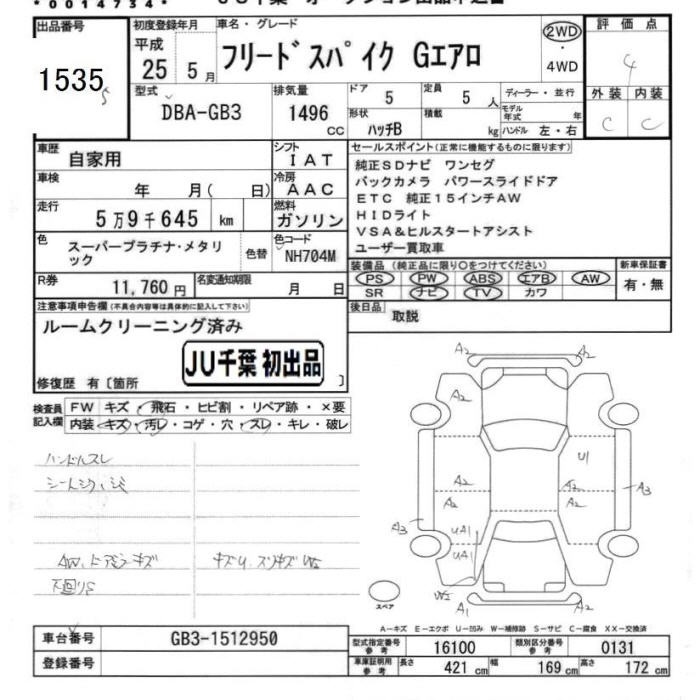 *0014734*
JU千葉 オークション出品申込書
出品番号
1535
S
初度登録年月
平成
25 5月
車名・グレード
フリードスパイク Gエアロ
2WD
・
4WD
評価点
4
外装 内装
C C
型式
DBA-GB3
排気量
1496
CC
ドア
5
定員
5人
ディーラー・並行
形状
ハッチB
積載
kg
モデル年式 年
ハンドル 左・右
車歴
自家用
シフト
IAT
車検
年 月( 日)
冷房
AAC
走行
5万9千645 km
燃料
ガソリン
色
スーパープラチナ・メタリック
色替
色コード
NH704M
R券
11,760円
名変通知期限
月 日
セールスポイント(正常に機能するものに限ります)
純正SDナビ ワンセグ
バックカメラ パワースライドドア
ETC 純正15インチAW
HIDライト
VSA&ヒルスタートアシスト
ユーザー買取車
装備品(純正品に限り○をつけてください)
PS PW ABS エアB AW
SR ナビ TV カワ
新車保証書
有・無
後日品
取説
注意事項申告欄(不具合内容等は具体的に記入して下さい)
ルームクリーニング済み
JU千葉 初出品
修復歴 有〔箇所 〕
検査員
記入欄
FW キズ・飛石・ヒビ割・リペア跡・×要
内装 キズ・汚レ・コゲ・穴・スレ・キレ・破レ
ハンドルスレ
AW、ドアミラーキズ
下廻りS
A2 A2
A2
U1
A2 A2
A2 A2
A3 A3
UA1
UA1
W2
A1 A2
スペア
A-キズ E-エクボ U-凹み W-補修跡 S-サビ C-腐食 XX-交換済
車台番号
GB3-1512950
登録番号
型式指定番号
参考
16100
類別区分番号
参考
0131
車庫証明用
参考
長さ 421cm 幅 169cm 高さ 172cm